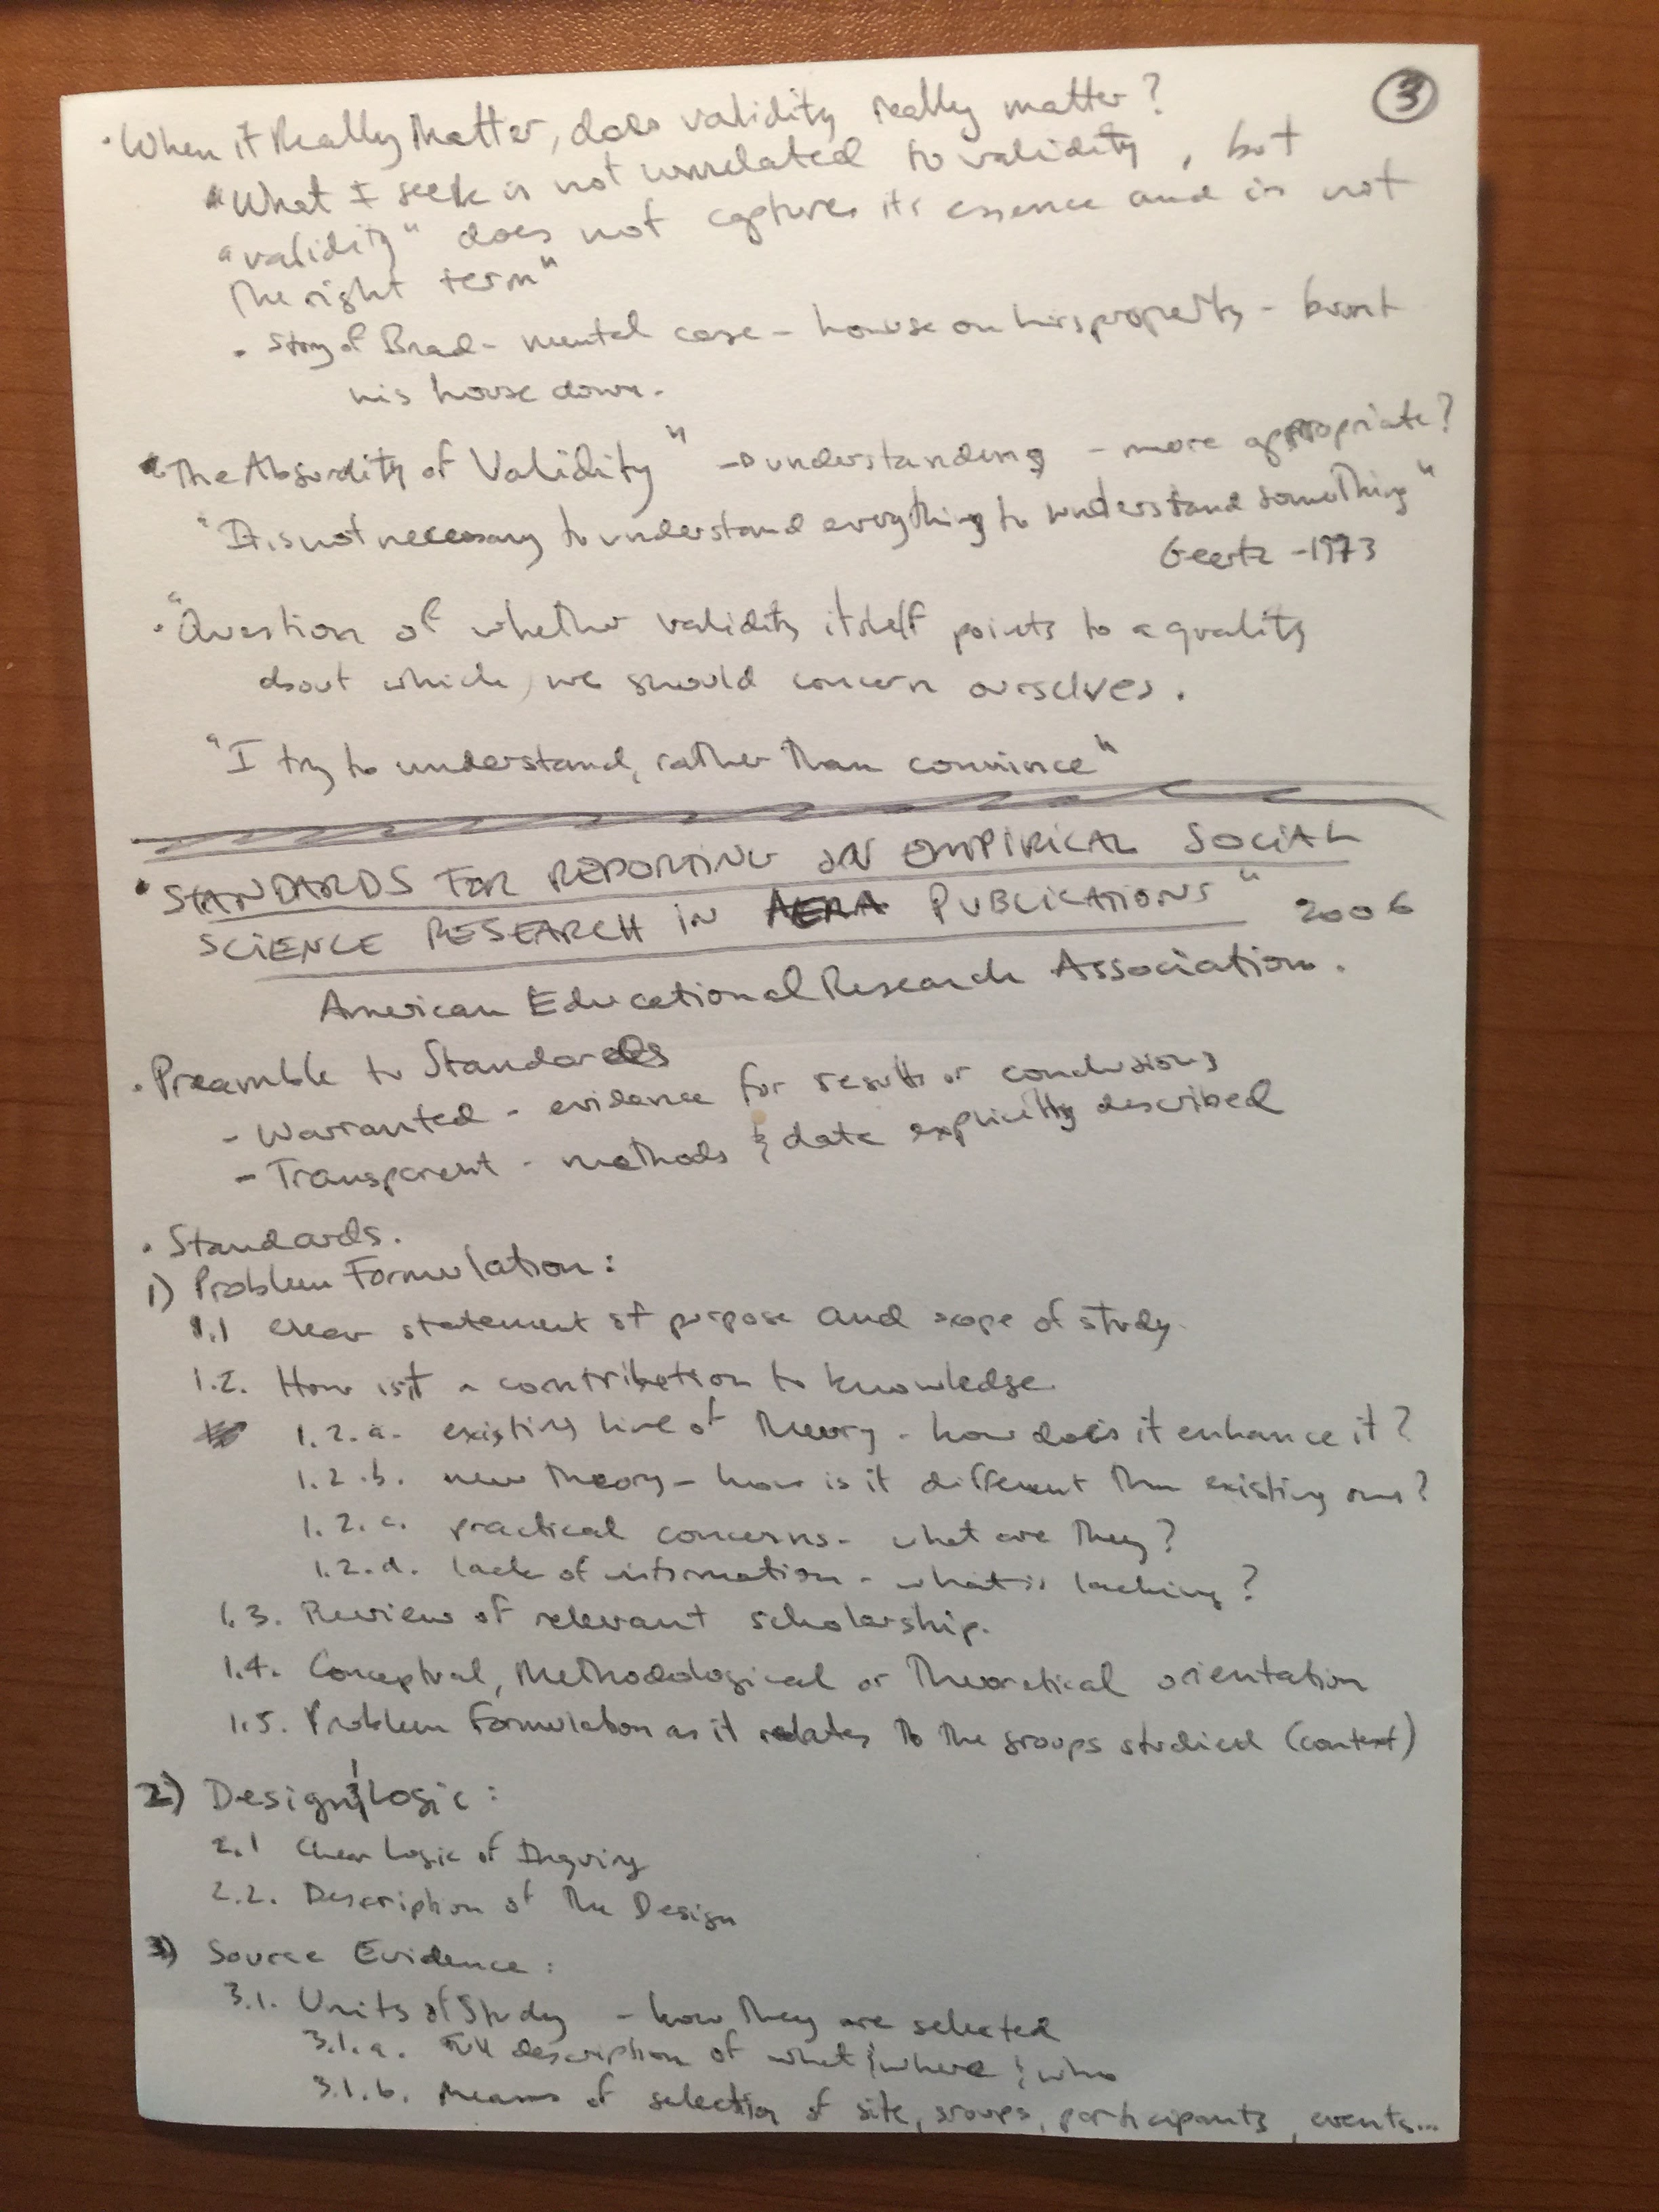 ③
· When it Really Matter, does validity really matter?
"What I seek is not unrelated to validity, but
"validity" does not captures its essence and is not
the right term"
· Story of Brad - mental case - house on his property - burnt
his house down.
"The Absurdity of Validity" → understanding - more appropriate?
"It is not necessary to understand everything to understand something"
Geertz - 1973
· "Question of whether validity itself points to a quality
about which, we should concern ourselves.
"I try to understand, rather than convince"
· STANDARDS FOR REPORTING ON EMPIRICAL SOCIAL
SCIENCE RESEARCH IN AERA PUBLICATIONS" 2006
American Educational Research Association.
· Preamble to Standards
- Warranted - evidence for results or conclusions
- Transparent - methods & data explicitly described
· Standards.
1) Problem Formulation:
1.1 clear statement of purpose and scope of study.
1.2. How is it a contribution to knowledge
1.2.a. existing line of theory - how does it enhance it?
1.2.b. new theory - how is it different than existing ones?
1.2.c. practical concerns - what are they?
1.2.d. lack of information - what is lacking?
1.3. Review of relevant scholarship.
1.4. Conceptual, Methodological or Theoretical orientation
1.5. Problem Formulation as it relates to the groups studied (context)
2) Design & Logic:
2.1 Clear Logic of Inquiry
2.2. Description of the Design
3) Source Evidence:
3.1. Units of Study - how they are selected
3.1.a. Full description of what & where & who
3.1.b. Means of selection of site, groups, participants, events...